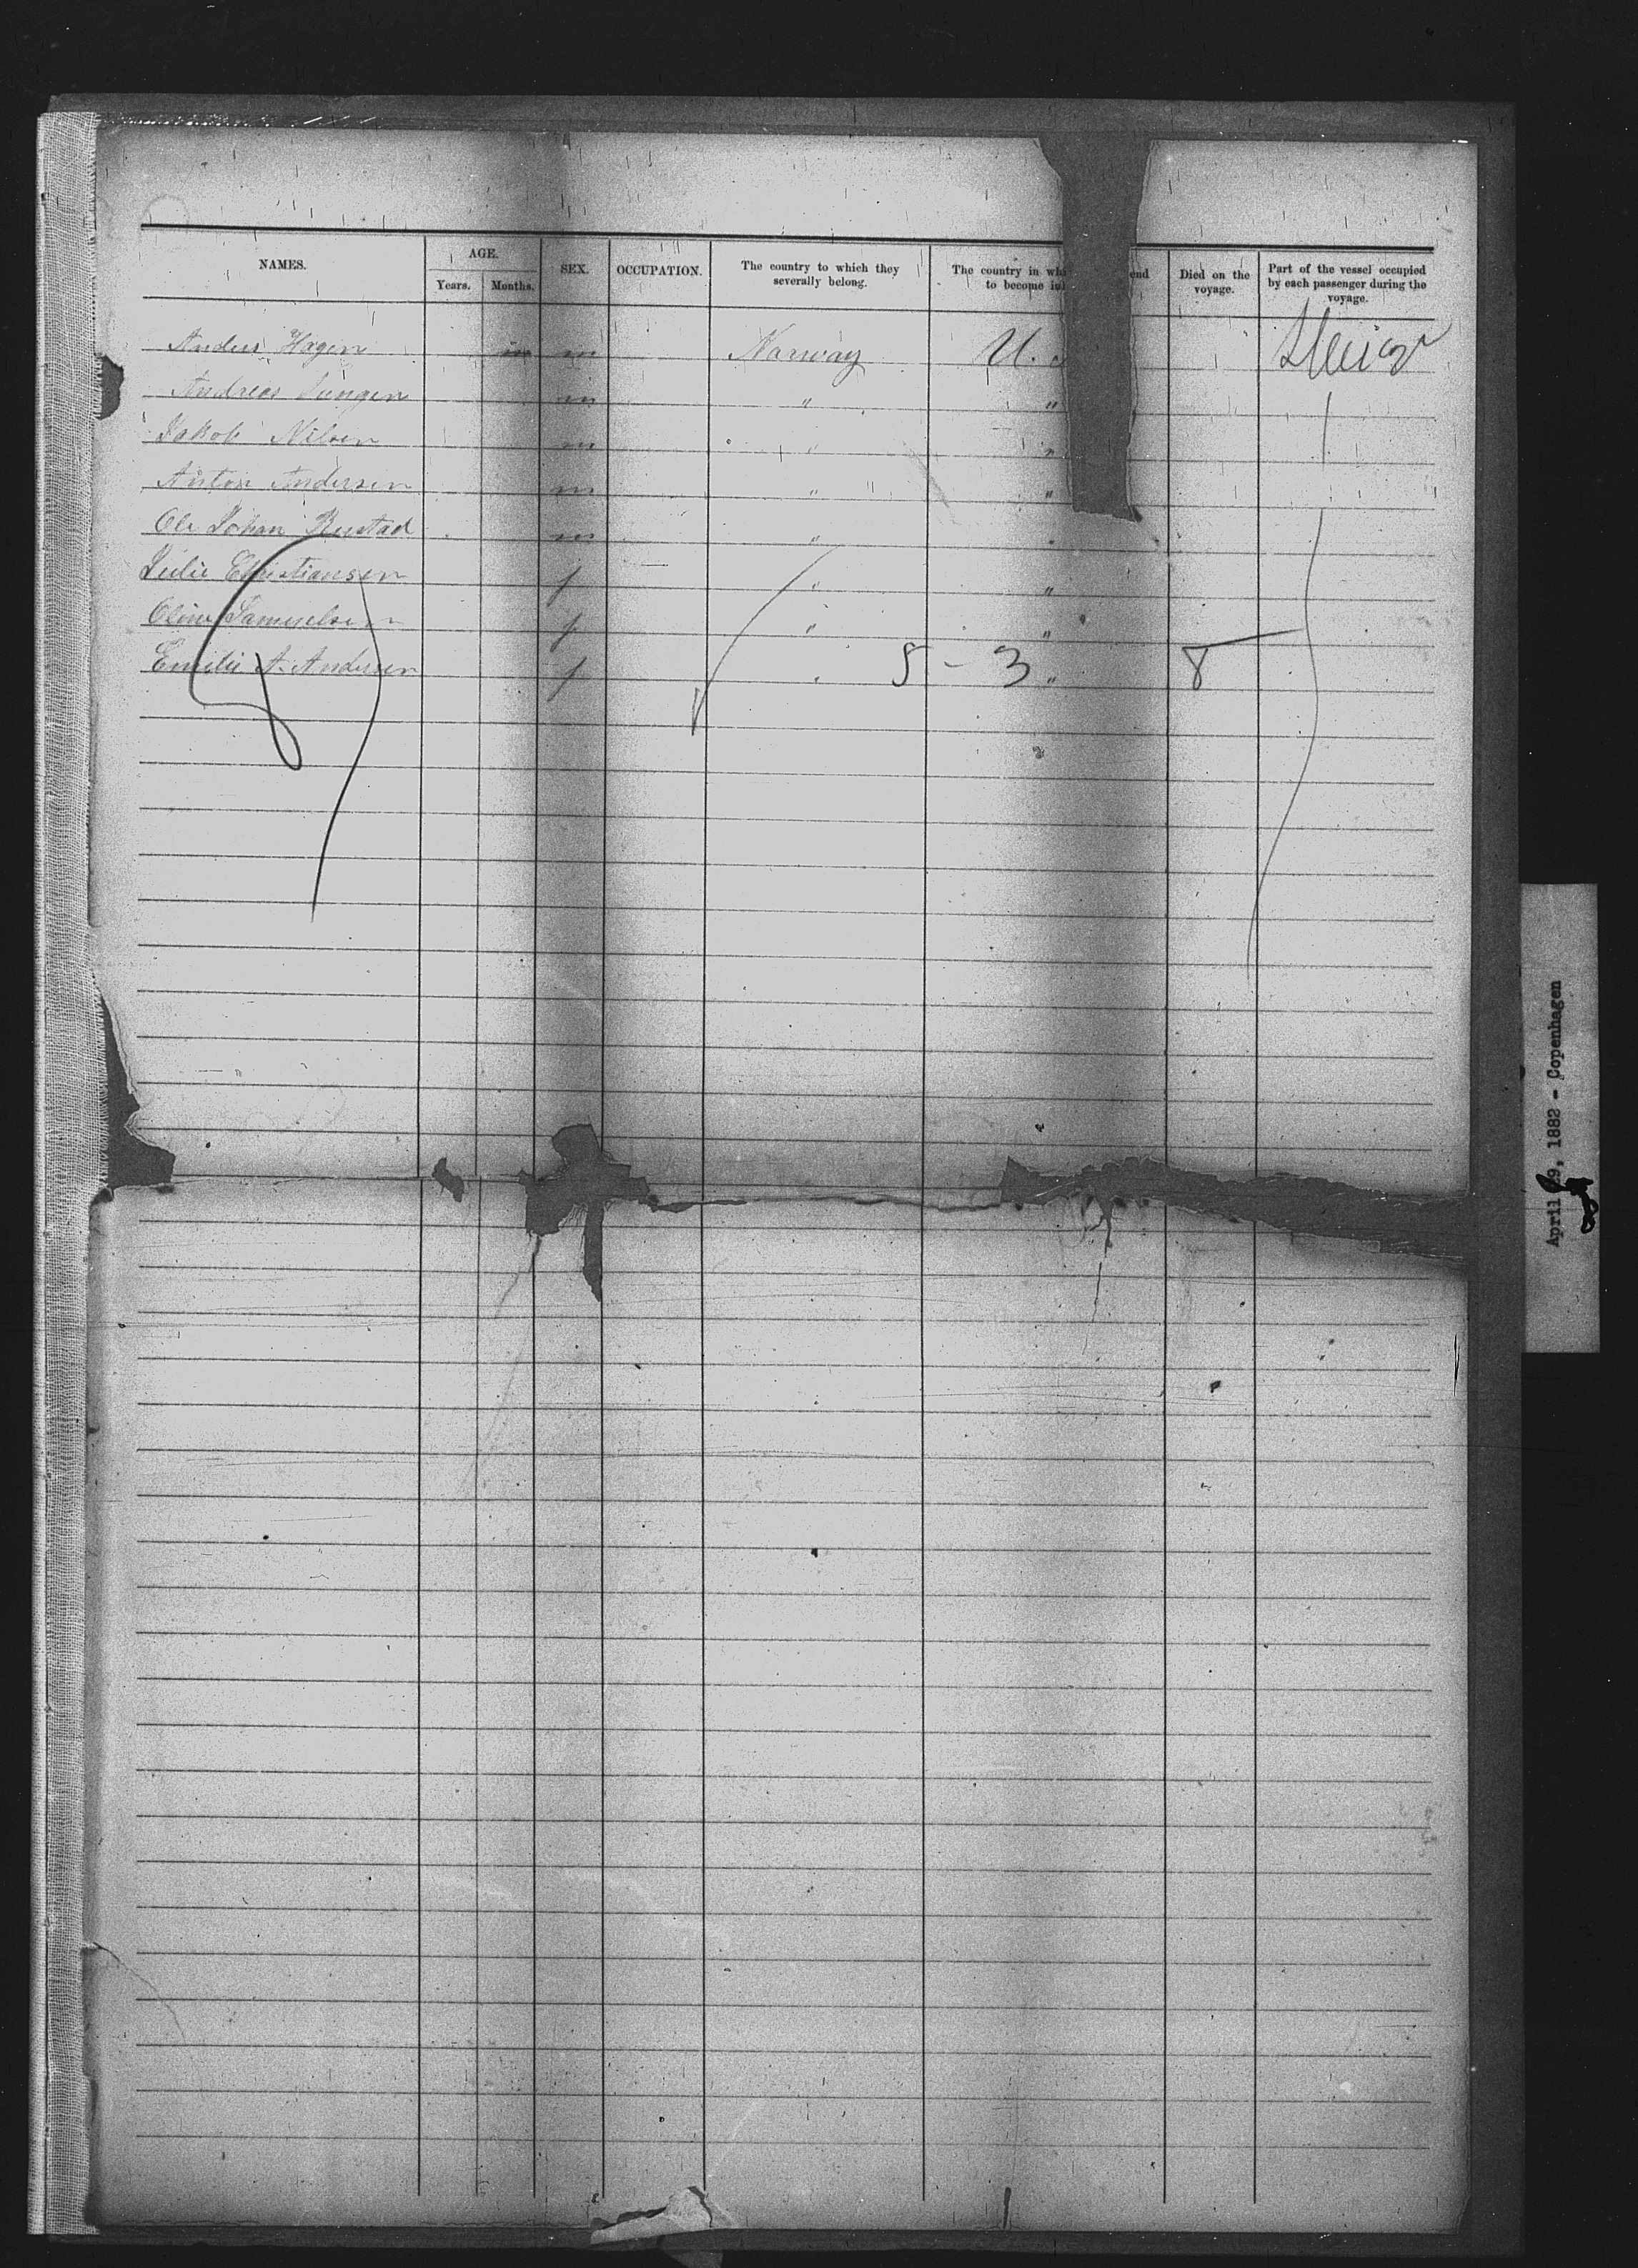 NAMES. AGE. SEX. OCCUPATION. The country to which they severally belong. The country in whi end to become in Died on the voyage. Part of the vessel occupied by each passenger during the voyage.
Years. Months.
Anders Hagen m m Norway U.
Andreas m " "
Jakob Nilsen m " "
Anton Andersen m " "
Ole Johan Rustad m "
Julie Christiansen f " "
Oline Samuelsen f " "
Emilie A. Andersen f " 5 - 3 " 8
April 9, 1882 - Copenhagen